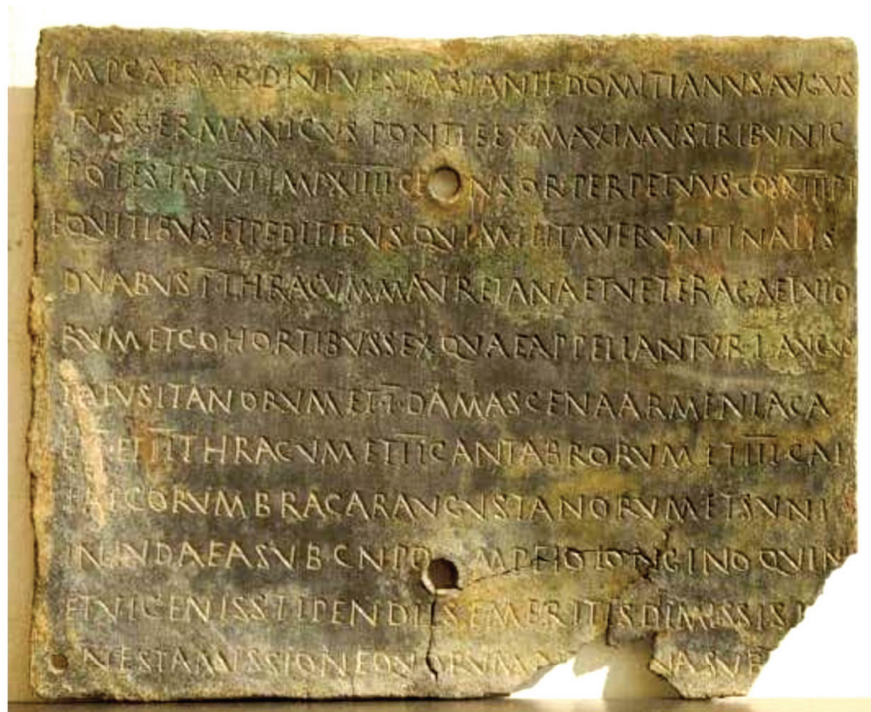 IMP CAESAR DIVI VESPASIANI F DOMITIANVS AVGVS
TVS GERMANICVS PONTIFEX MAXIMVS TRIBVNIC
POTESTAT VII IMP XIIII CENSOR PERPETVVS COS XIII P
EQVITIBVS ET PEDITIBVS QVI MILITAVERVNT IN ALIS
DVABVS I THRACVM MAVRETANA ET VETERA GAETVLO
RVM ET COHORTIBVS SEX QVAE APPELLANTVR I AVGVS
TA LVSITANORVM ET I DAMASCENA ARMENIACA
ET I ET II THRACVM ET II CANTABRORVM ET III CAL
LAECORVM BRACARAVGVSTANORVM ET SVNT
IN IVDAEA SVB CN POMPEIO LONGINO QVIN
ET VICENIS STIPENDIIS EMERITIS DIMISSIS
NESTA MISSIONE QVORVM NA SVB